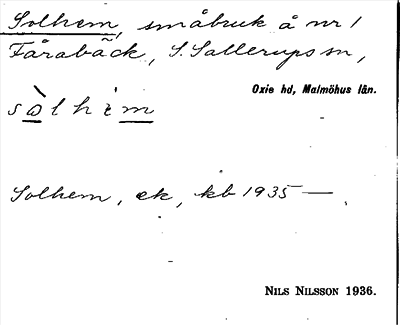 Solhem, småbruk å nr 1
Fårabäck, S. Sallerups sn,
Oxie hd, Malmöhus län.
sòlhèm
Solhem, ek, kb 1935 —.
NILS NILSSON 1936.